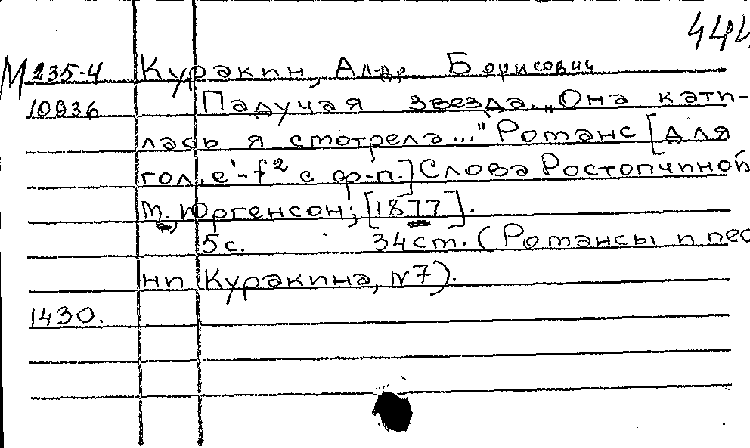 444
М 235-4 Куракин, Ал-др Борисович
10936 Падучая звезда. „Она кати-
лась я смотрела..." Романс [для
гол. e'-f² с ф-п.] Слова Ростопчиной
М. Юргенсон; [1877].
5с. 34см. (Романсы и пес
ни Куракина, N7).
1430.